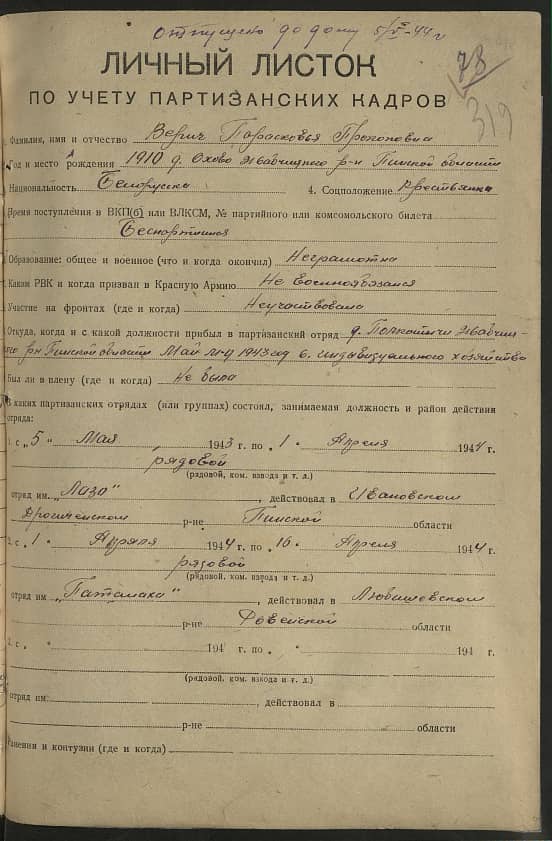 Отпущена до дому 5/V-44 г
78
319
ЛИЧНЫЙ ЛИСТОК
ПО УЧЕТУ ПАРТИЗАНСКИХ КАДРОВ
Фамилия, имя и отчество Верич Парасковья Прокоповна
Год и место рождения 1910 д. Охово Жабчицкого р-н Пинской области
Национальность Белоруска 4. Соцположение Крестьянка
Время поступления в ВКП(б) или ВЛКСМ, № партийного или комсомольского билета
Беспартийная
Образование: общее и военное (что и когда окончил) Неграмотна
Каким РВК и когда призван в Красную Армию Не военнообязаная
Участие на фронтах (где и когда) Неучаствовала
Откуда, когда и с какой должности прибыл в партизанский отряд д. Жабчиц-
кого р-н Пинской области Май м-ц 1943 год с. индивизуального хозяйства
Был ли в плену (где и когда) Не была
В каких партизанских отрядах (или группах) состоял, занимаемая должность и район действия
отряда:
1. с „5" Мая 1943 г. по „1" Апреля 1944 г.
рядовой
(рядовой, ком. взвода и т. д.)
отряд им. „Лазо", действовал в Ивановском
Дрогиченском р-не Пинской области
2. с „1" Апреля 1944 г. по „16" Апреля 1944 г.
рядовой
(рядовой, ком. взвода и т. д.)
отряд им „Паталаха", действовал в Любашовском
р-не Ровенской области
2. с „ " 194 г. по „ " 194 г.
(рядовой, ком. взвода и т. д.)
отряд им. , действовал в
р-не области
Ранения и контузии (где и когда)